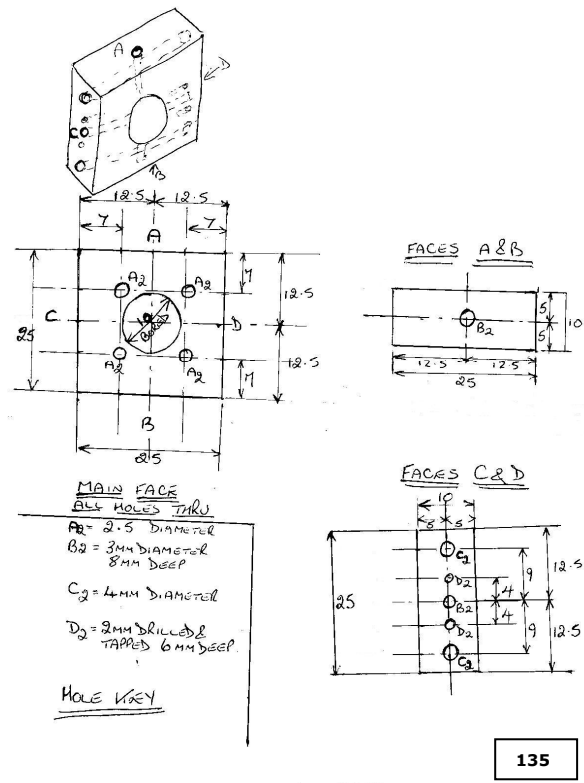 A
D
C
B
12.5 12.5
7 7
A
A2 A2
7
12.5
C
25
D
A2 A2
12.5
7
B
25
FACES A&B
B2
5
5
10
12.5 12.5
25
MAIN FACE
ALL HOLES THRU
A2 = 2.5 DIAMETER
B2 = 3MM DIAMETER
8MM DEEP
C2 = 4MM DIAMETER
D2 = 2MM DRILLED &
TAPPED 6MM DEEP
HOLE KEY
FACES C&D
10
5
C2
D2
B2
D2
C2
25
4
4
9
9
12.5
12.5
135